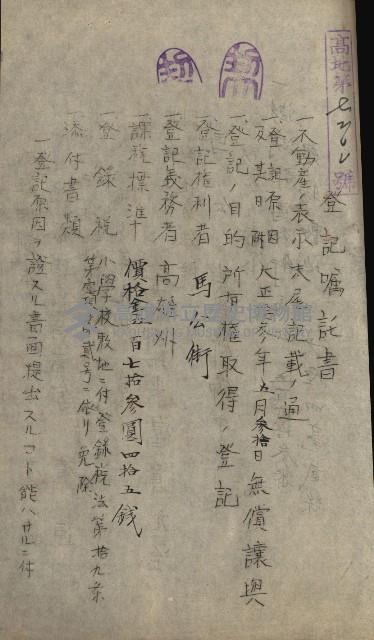 高地第七二〇〇號
登記囑託書
一不動産ノ表示 末尾記載ノ通
一登記原因 大正參年五月參拾日無償讓與
及其日附
一登記ノ目的 所有權取得ノ登記
登記權利者 馬公街
一登記義務者 高雄州
一課税標準 價格金百七拾參圓四拾五錢
一登錄税 小學校敷地ニ付登錄税法第拾九條
第壹項第貳号ニ依リ免除
添付書類
一登記原因ヲ證スル書面提出スルコト能ハサルニ付
高雄市立歷史博物館